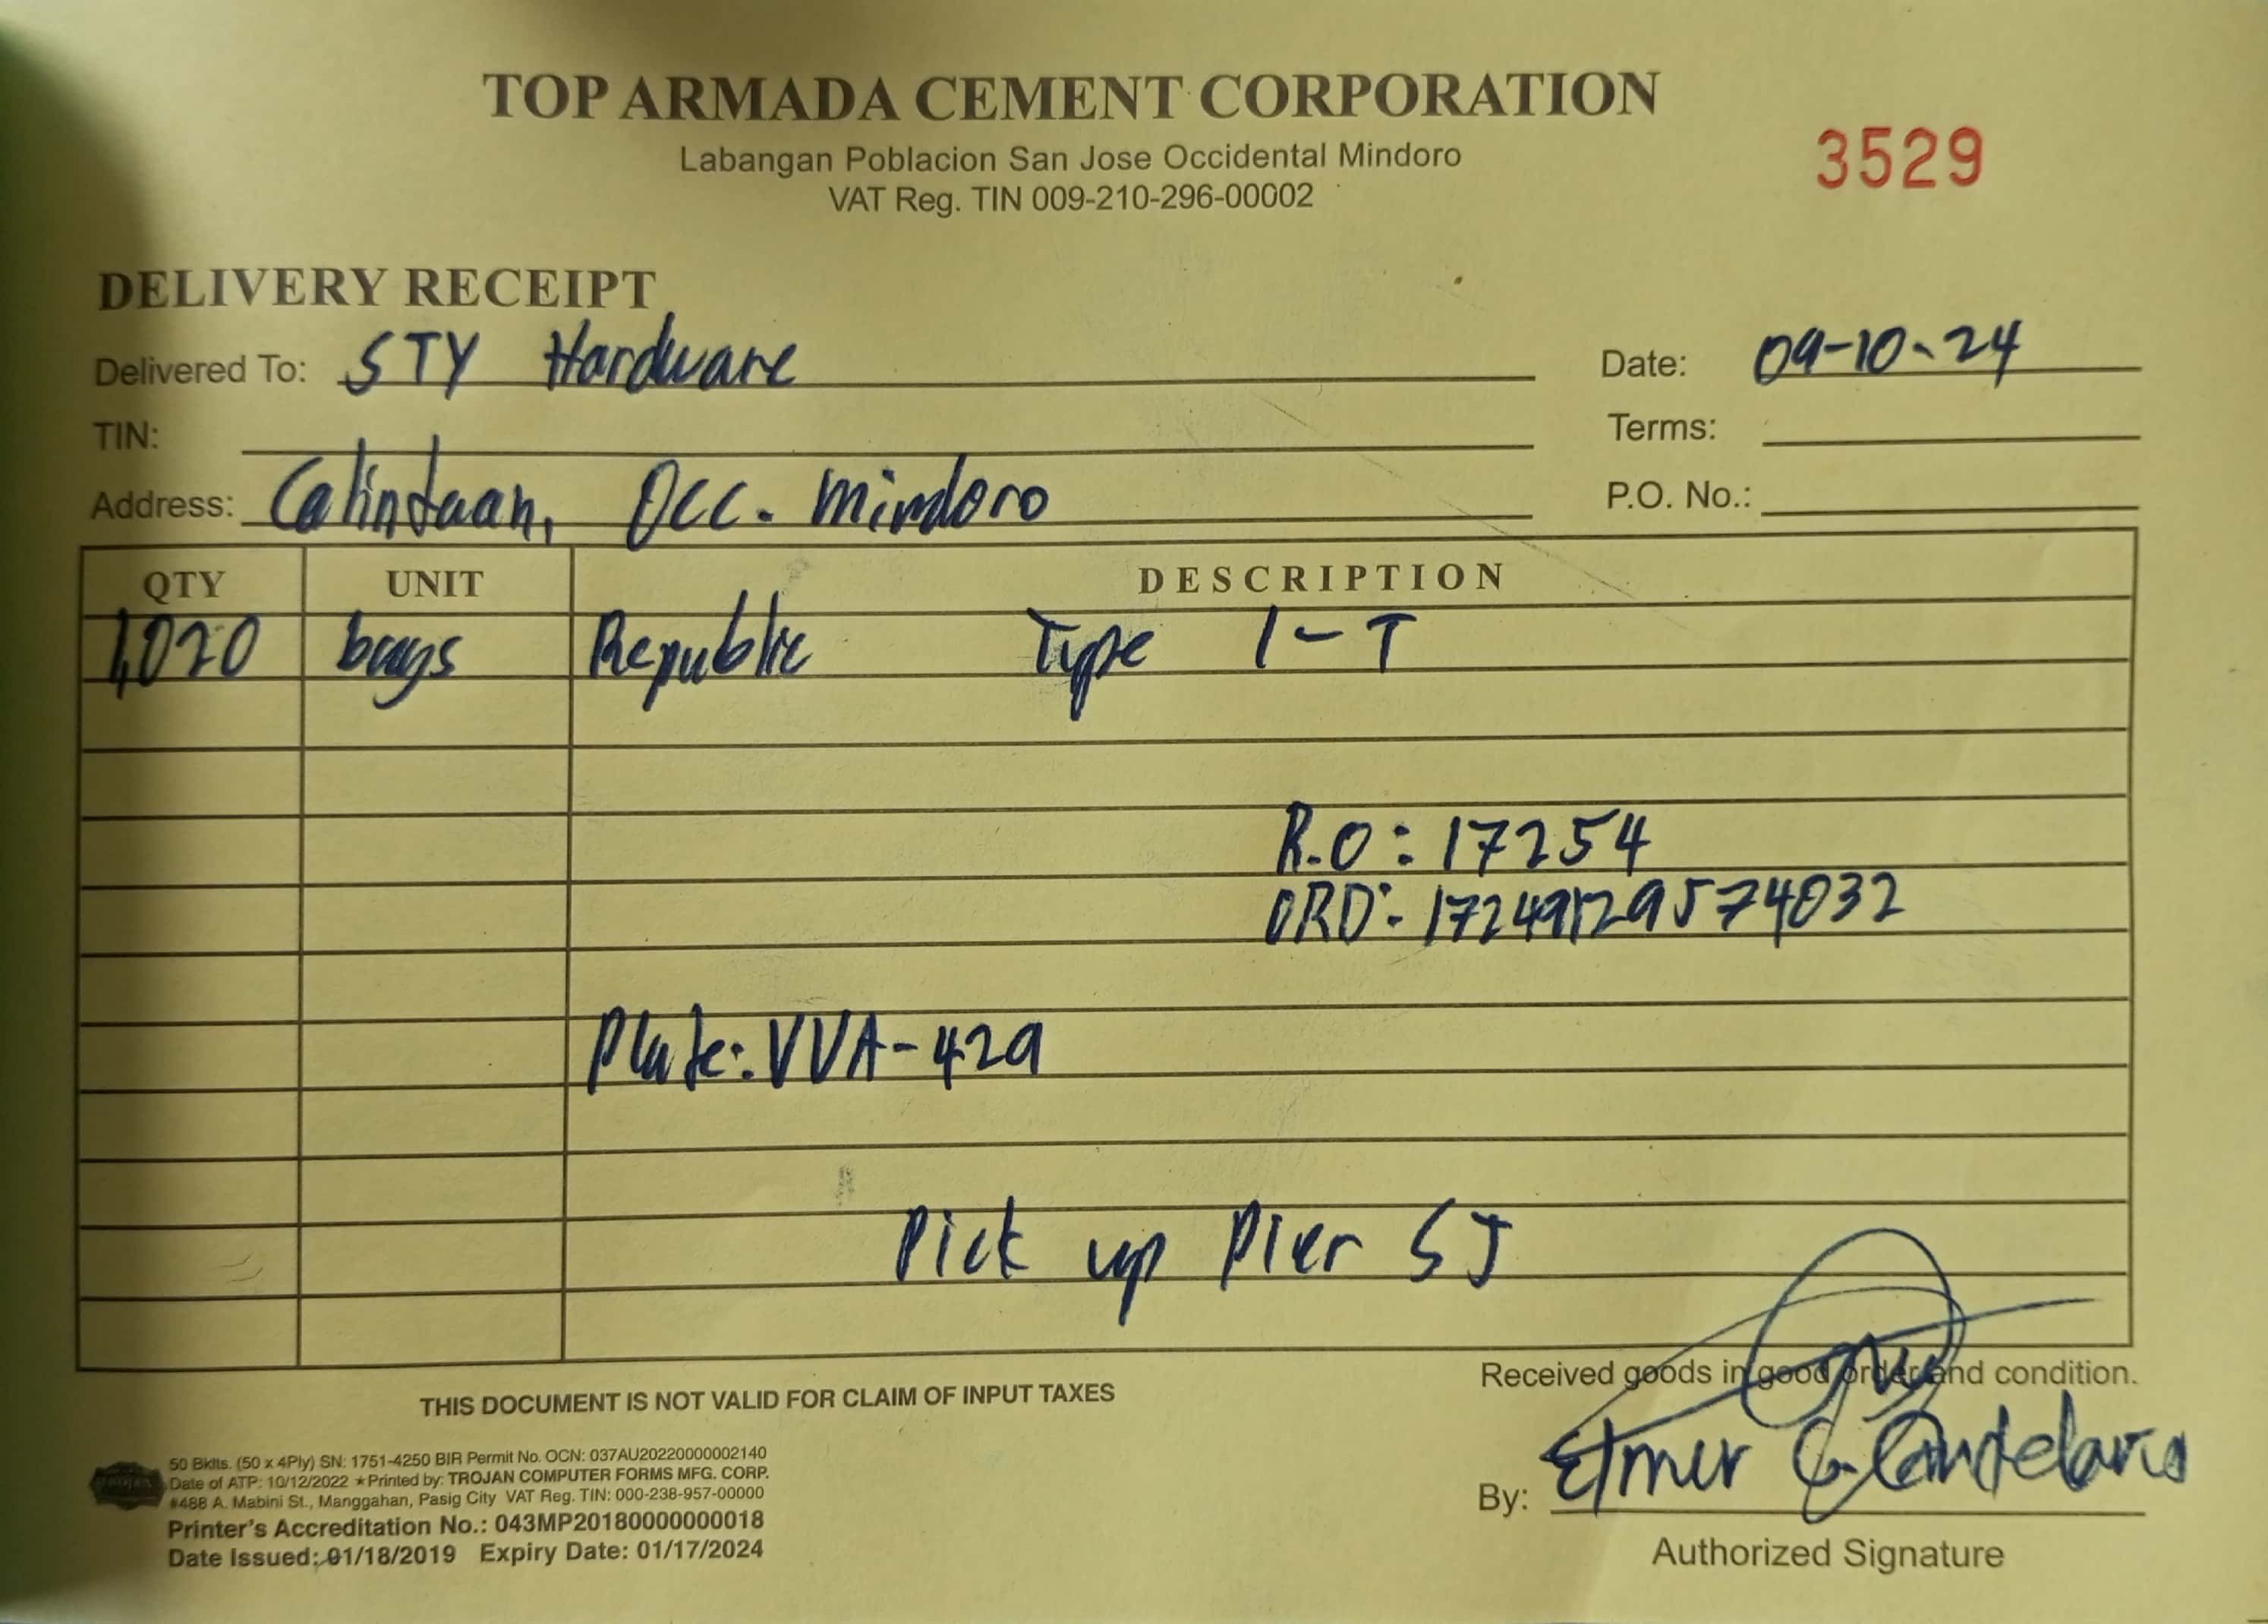 TOP ARMADA CEMENT CORPORATION
Labangan Poblacion San Jose Occidental Mindoro
VAT Reg. TIN 009-210-296-00002
3529
DELIVERY RECEIPT
Delivered To: STY Hardware
Date: 09-10-24
TIN:
Terms:
Address: Calintaan, Occ. Mindoro
P.O. No.:
QTY UNIT DESCRIPTION
1,020 bags Republic Type 1-T
R.O: 17254
ORD: 17249129574032
Plate: VVA-429
Pick up Pier SJ
Received goods in good order and condition.
THIS DOCUMENT IS NOT VALID FOR CLAIM OF INPUT TAXES
50 Bklts. (50 x 4Ply) SN: 1751-4250 BIR Permit No. OCN: 037AU20220000002140
Date of ATP: 10/12/2022 ★Printed by: TROJAN COMPUTER FORMS MFG. CORP.
#488 A. Mabini St., Manggahan, Pasig City VAT Reg. TIN: 000-238-957-00000
Printer's Accreditation No.: 043MP20180000000018
Date Issued: 01/18/2019 Expiry Date: 01/17/2024
By: Elmer C. Candelario
Authorized Signature